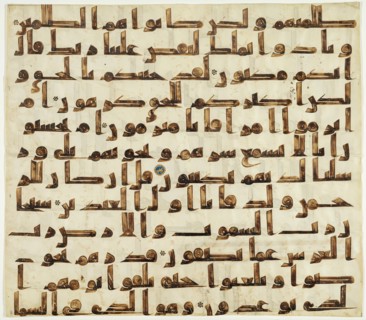 ظلمنهم ولكن كانوا هم الظلمين
ونادوا يملك ليقض علينا ربك قال
انكم مكثون لقد جئنكم بالحق و
لكن اكثركم للحق كرهون ام
ابرموا امرا فانا مبرمون ام يحسبو
ن انا لا نسمع سرهم ونجوهم بلى و
رسلنا لديهم يكتبون قل ان كان للر
حمن ولد فانا اول العبدين سبحن
رب السموت والارض رب
العرش عما يصفون فذرهم
يخوضوا ويلعبوا حتى يلقوا يومهم
الذي يوعدون وهو الذي في السما